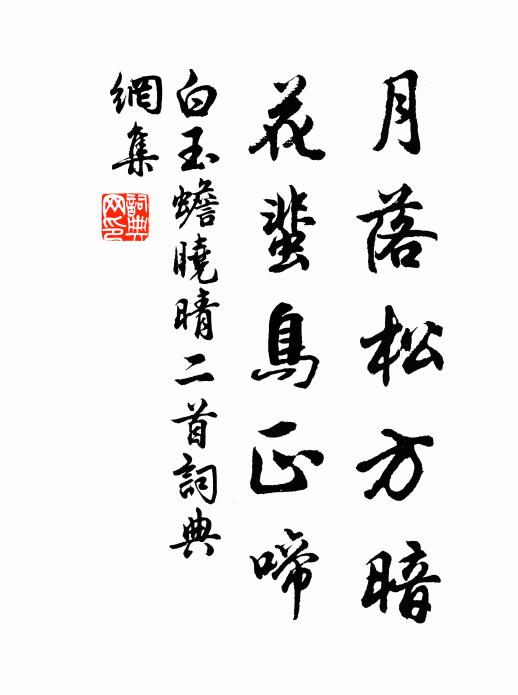 月落松方暗
花蜚鳥正啼
白玉蟾曉晴二首詞典
網集
詞典
网印